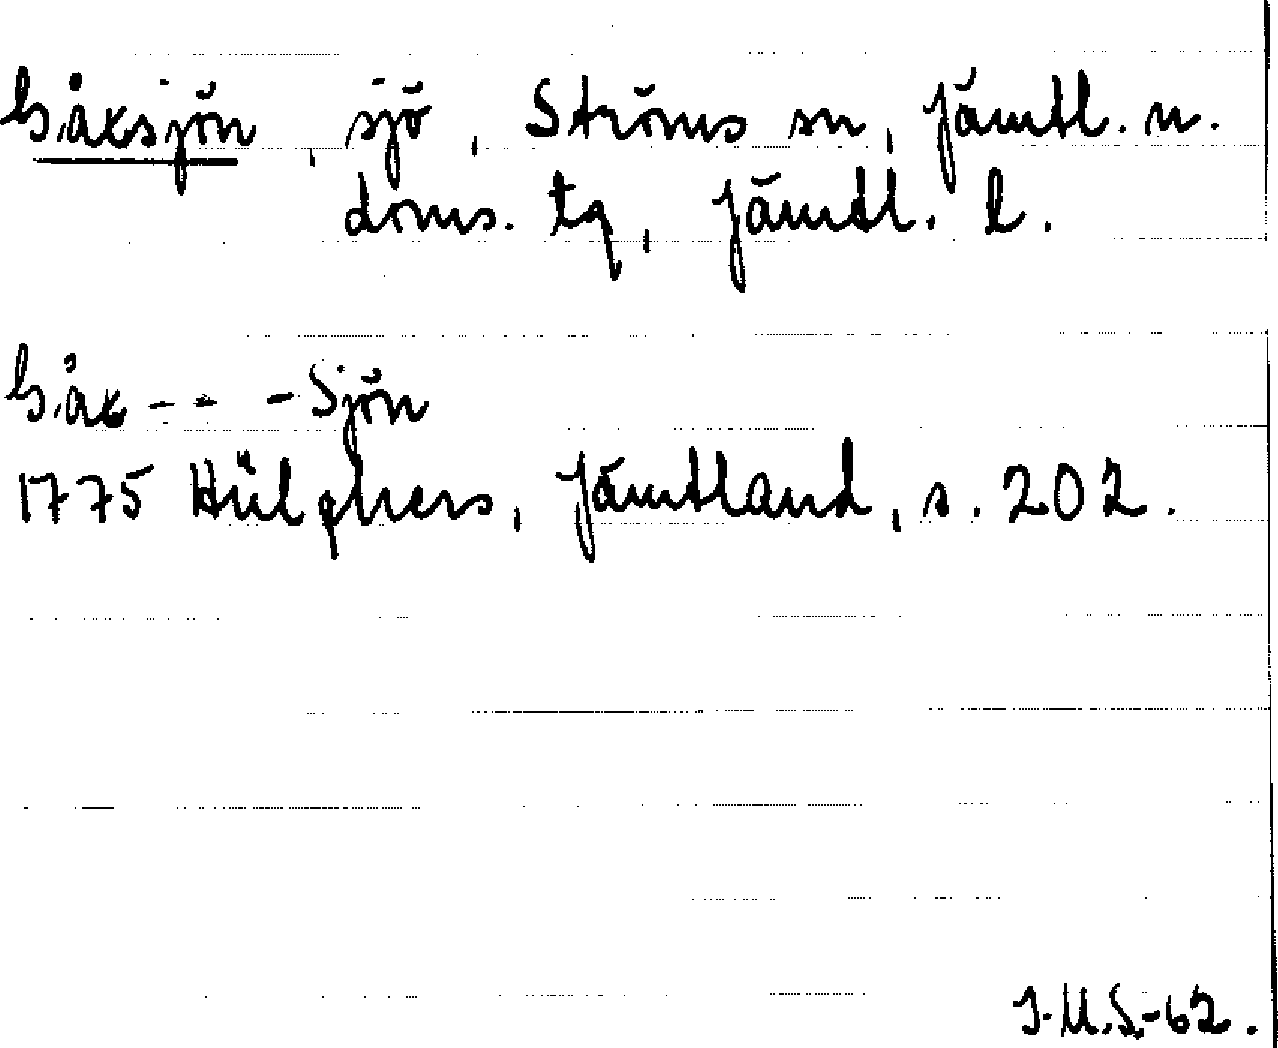 Gåxsjön, sjö, Ströms sn, Jämtl. n.
doms. tg, Jämtl. l.
Gåx - - - Sjön
1775 Hülphers, Jämtland, s. 202.
I.M.S.-62.